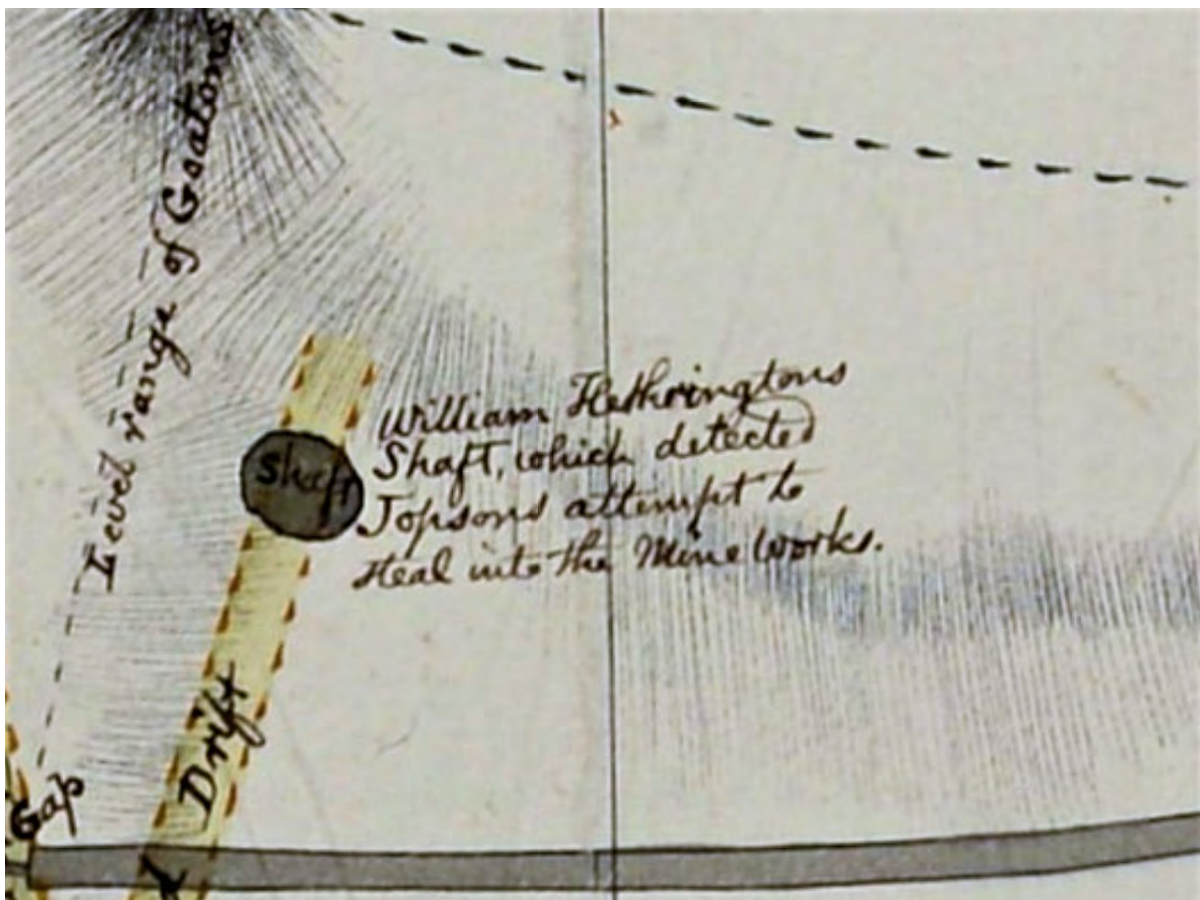 Level range of Goatons
Shaft
William Hetheringtons
Shaft, which detected
Jopsons attempt to
steal into the Mine Works.
Drift
Gap